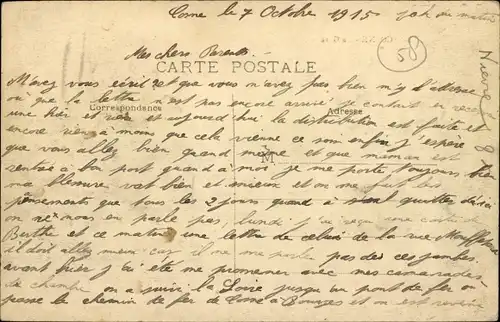 Cosne le 7 Octobre 1915 10h du matin
58
Mes chers Parents.
CARTE POSTALE
Correspondance
Adresse
M
Nièvre
M'avez vous écrit? et que vous n'avez pas bien m'y l'adresse
ou que la lettre n'est pas encore arrivé je comptait en recevoir
une hier et rien et aujourd'hui la distribution est faite et
encore rien à moins que cela vienne ce soir enfin j'espère
que vous allez bien quand même et que maman est
rentrée à bon port quand à moi je me porte toujours bien
ma blessure vat bien et mieux et on me fait les
pensements que tous les 2 jours quand à quitter d'ici
on ne nous en parle pas, lundi j'ai reçu une carte de
Berthe et ce matin une lettre de celui de la rue Mouffetard
il doit allez mieux car il ne me parle pas de ces jambes.
avant hier j'ai été me promener avec mes camarades
de chambre on a suivi la Loire jusqu'au pont de fer où
passe le chemin de fer de Cosne à Bourges et on est revenu